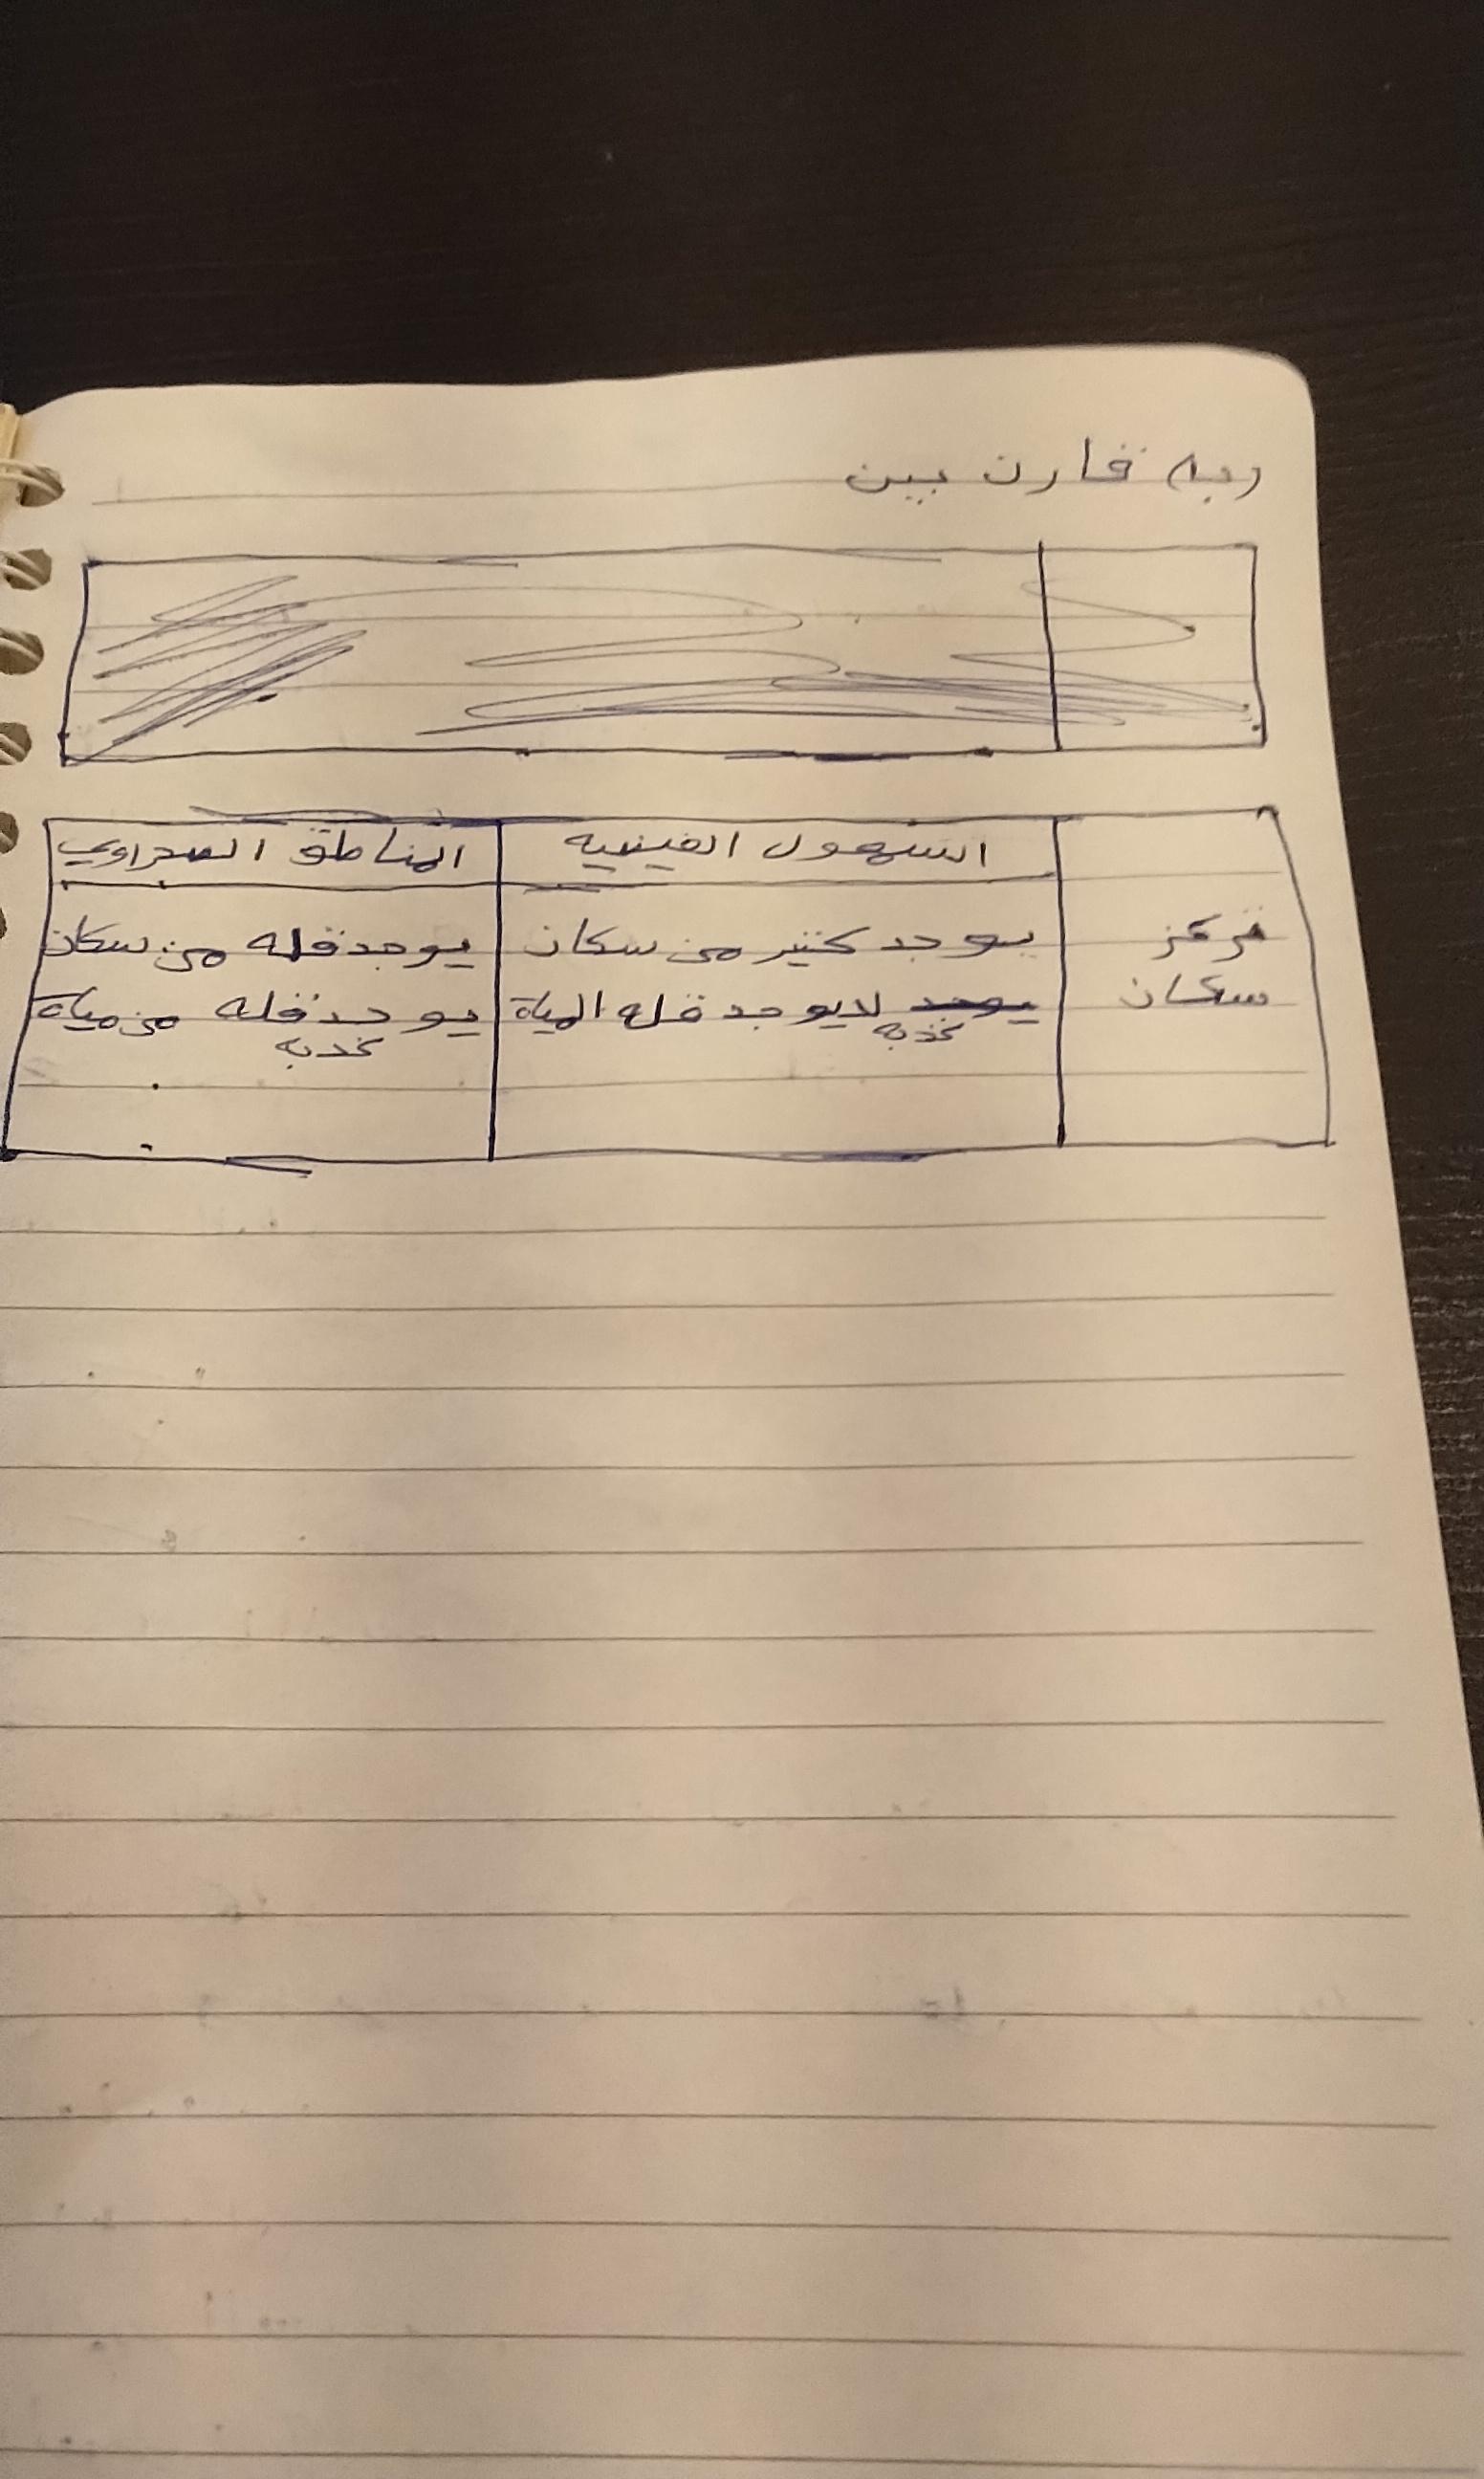 قارن بين
السهول الفيضيه
المناطق الصحراوي
تركز
سكان
يوجد كثير من سكان
يوجد لايوجد قله المياة
عذبه
يوجد قله من سكان
يوجد قله من مياة
عذبه